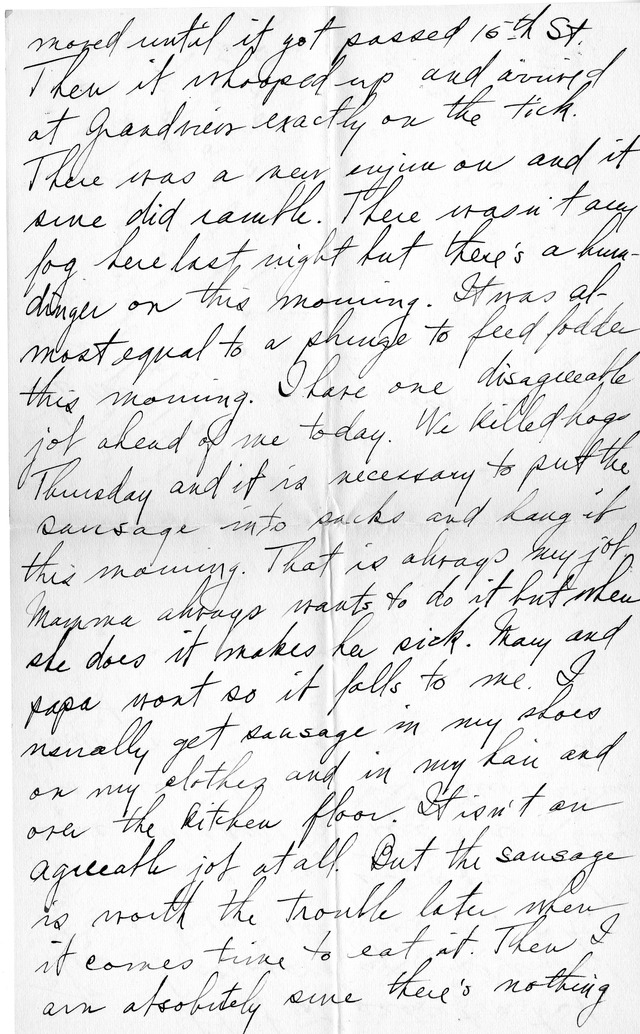 moved until it got passed 15th St.
Then it whooped up and arrived
at Grandview exactly on the tick.
There was a new enjine on and it
sure did ramble. There wasn't any
fog here last night but there's a hum-
dinger on this morning. It was al-
most equal to a plunge to feed fodder
this morning. I have one disagreeable
job ahead of me today. We killed hogs
Thursday and it is necessary to put the
sausage into sacks and hang it
this morning. That is always my job.
Mamma always wants to do it but when
she does it makes her sick. Mary and
papa wont so it falls to me. I
usually get sausage in my shoes
on my clothes and in my hair and
over the kitchen floor. It isn't an
agreeable job at all. But the sausage
is worth the trouble later when
it comes time to eat it. Then I
am absolutely sure there's nothing